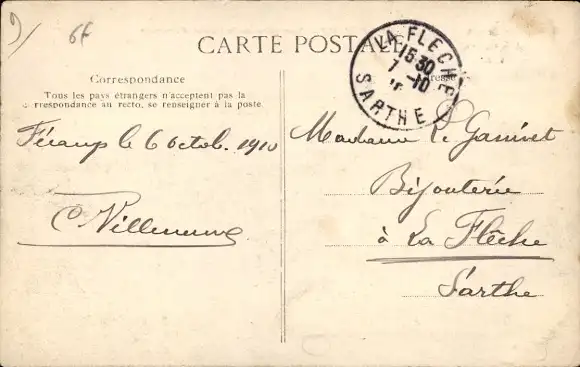 9/
6f
CARTE POSTALE
LA FLECHE
15 30
7 -10
SARTHE
Correspondance
Tous les pays étrangers n'acceptent pas la
correspondance au recto, se renseigner à la poste.
Adresse
Fécamp le 6 octob. 1910
C Villeneuve
Madame
Bijouterie
à La Flèche
Sarthe